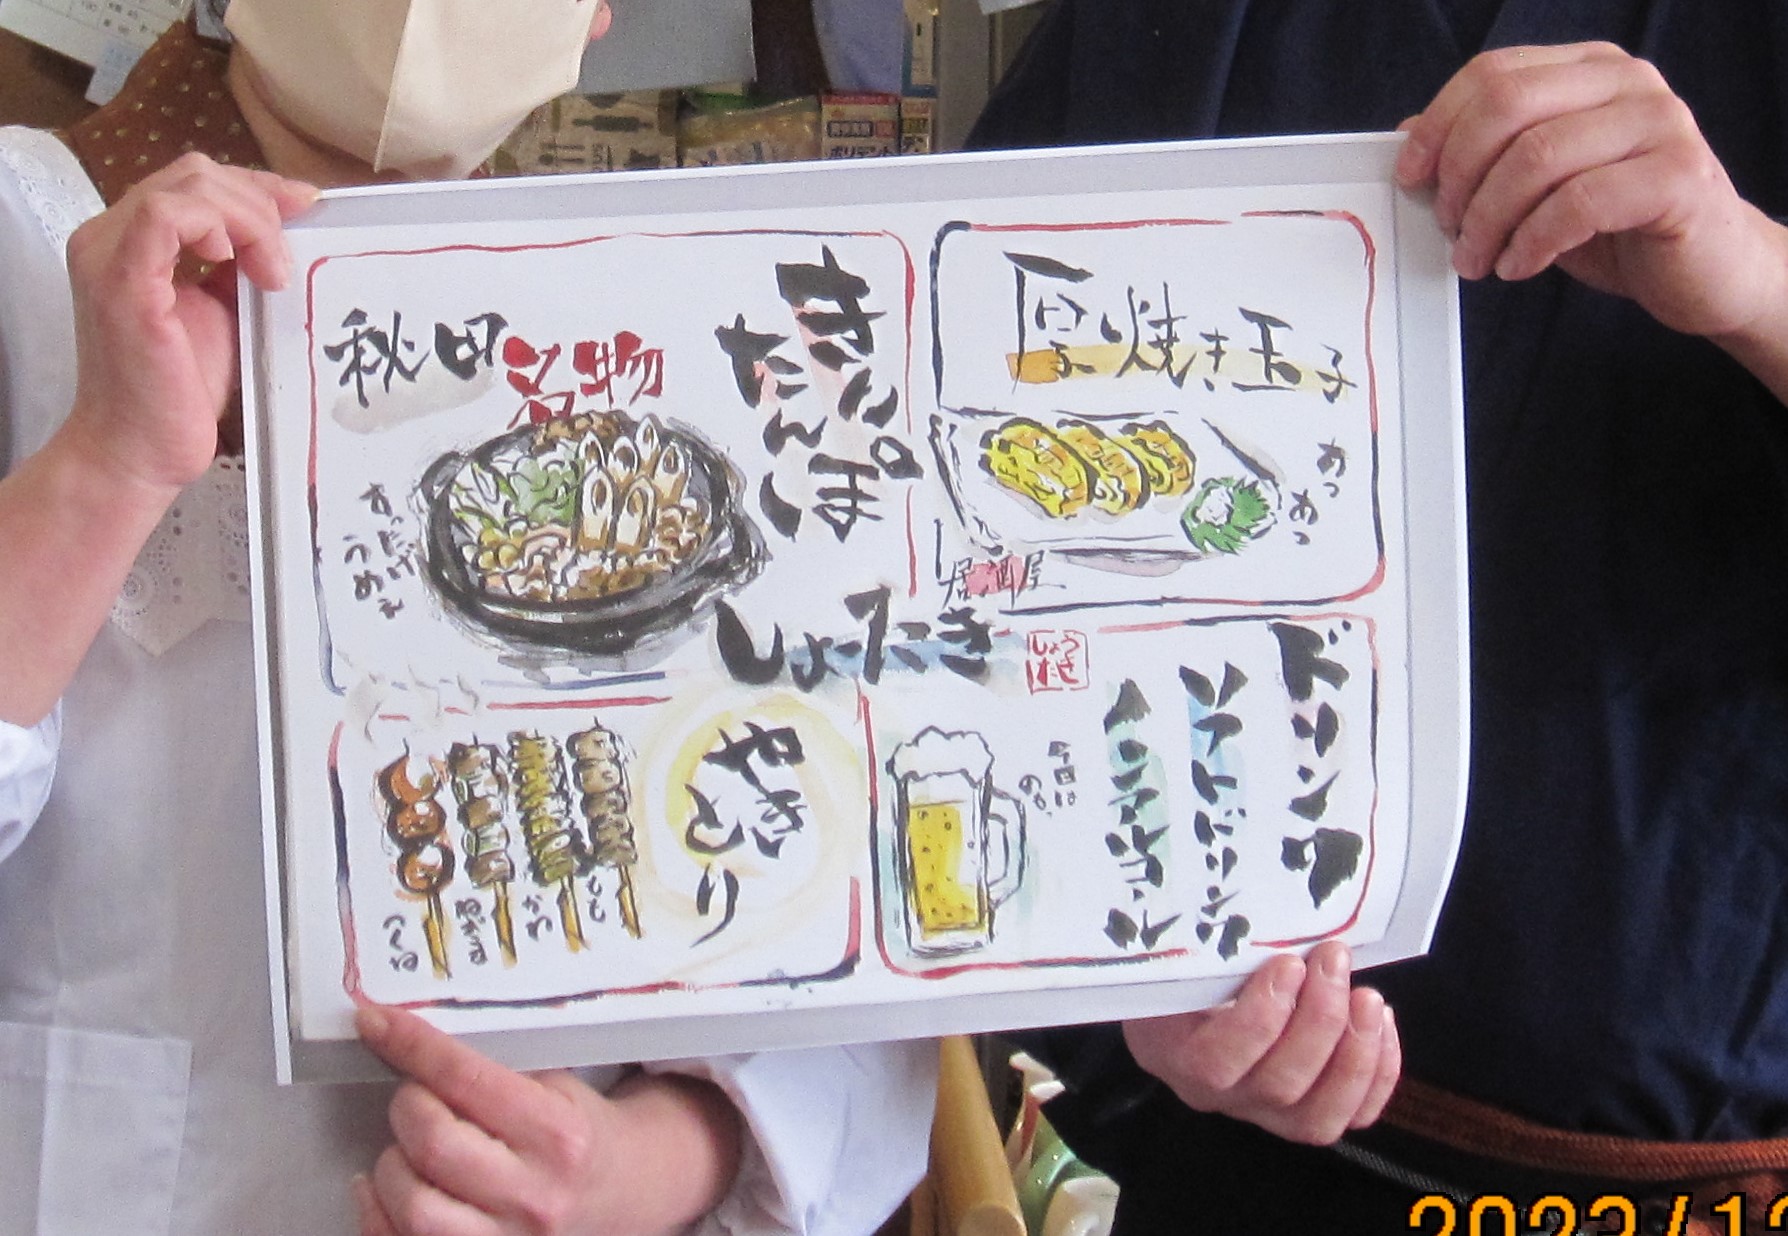 秋田名物
きりたんぽ
すったげ
うめぇ
厚焼き玉子
あつ
あつ
居酒屋
しょーたき
しょう
たき
やきとり
もも
かわ
つくね
ドリンク
ソフトドリンク
ノンアルコール
今回は
のみ
ポリデント
2023/12